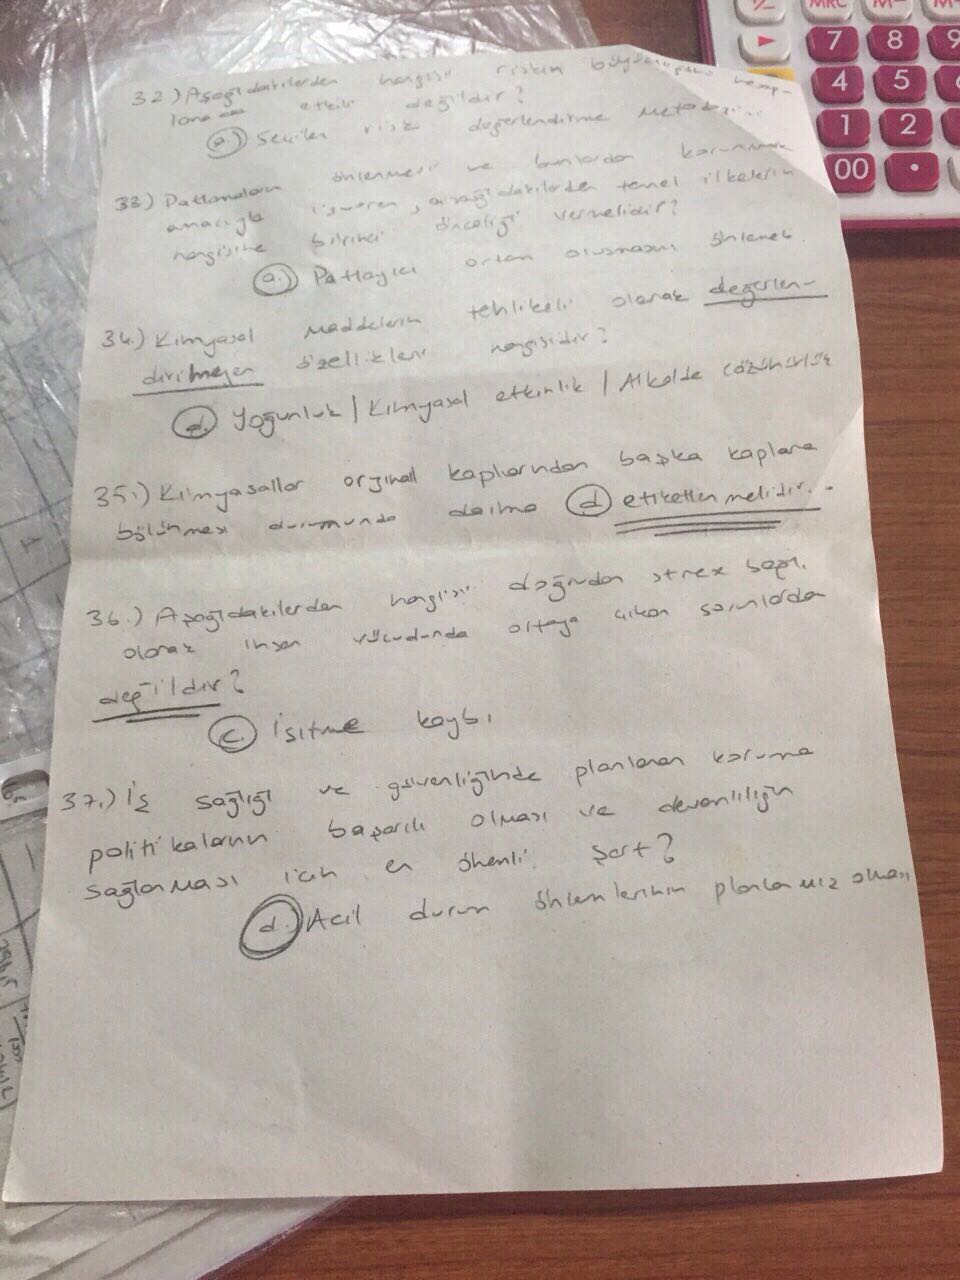 32.) Aşağıdakilerden hangisi riskin hesap-
lana etkili değildir?
a.) Seçilen risk değerlendirme
33.) Patlamaların önlenmesi ve bunlardan korunmak
amacıyla işveren, aşağıdakilerden temel ilkelerin
hangisine birinci önceliği vermelidir?
a.) Patlayıcı ortam oluşmasını önlemek
34.) Kimyasal maddelerin tehlikeli olarak değerlen-
dirilmeyen özellikleri hangisidir?
d. Yoğunluk / Kimyasal etkinlik / Alkolde çözünürlük
35.) Kimyasallar orjınal kaplarından başka kaplara
bölünmesi durumunda daima d etiketlenmelidir.
36.) Aşağıdakilerden hangisi doğrudan strex
olarak insan vücudunda ortaya çıkan sorunlardan
değildir?
c. İşitme kaybı
37.) İş sağlığı ve güvenliğinde planlanan koruma
politikalarının başarılı olması ve devamlılığın
sağlanması için en önemli şart?
d. Acil durum önlemlerinin planlamız olması
7 8 9
4 5 6
1 2
00 •
MRC M-